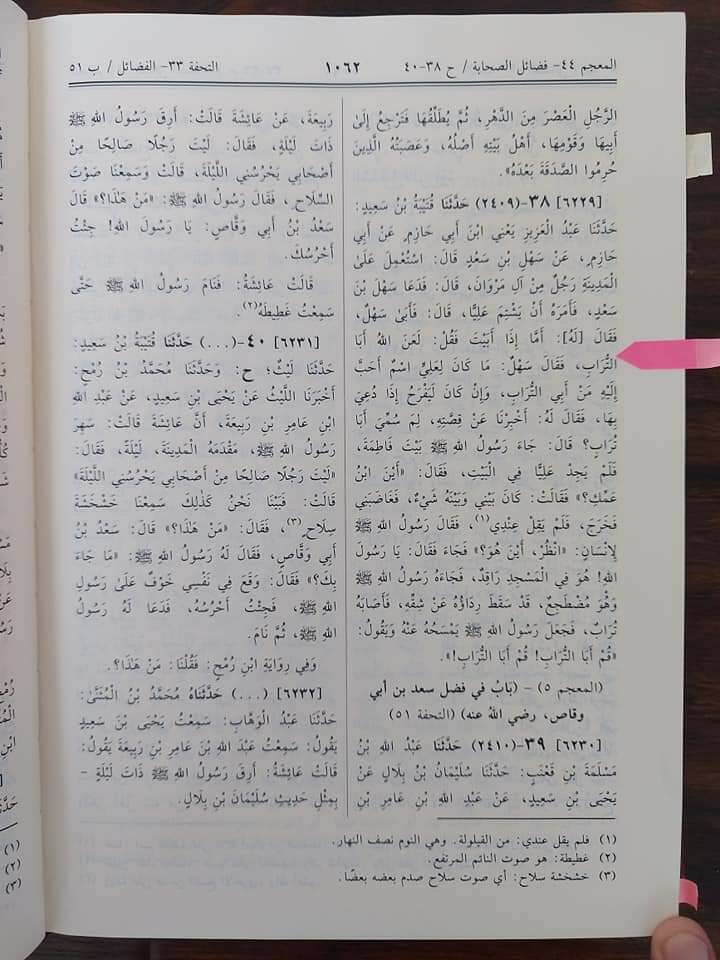 المعجم ٤٤- فضائل الصحابة / ح ٣٨-٤٠
١٠٦٢
التحفة ٣٣- الفضائل / ب ٥١
الرَّجُلِ الْعَصْرَ مِنَ الدَّهْرِ، ثُمَّ يُطَلِّقُهَا فَتَرْجِعُ إِلَىٰ
أَبِيهَا وَقَوْمِهَا، أَهْلُ بَيْتِهِ أَصْلُهُ، وَعَصَبَتُهُ الَّذِينَ
حُرِمُوا الصَّدَقَةَ بَعْدَهُ».
[٦٢٢٩] ٣٨-(٢٤٠٩) حَدَّثَنَا قُتَيْبَةُ بْنُ سَعِيدٍ:
حَدَّثَنَا عَبْدُ الْعَزِيزِ يَعْنِي ابْنَ أَبِي حَازِمٍ عَنْ أَبِي
حَازِمٍ، عَنْ سَهْلِ بْنِ سَعْدٍ قَالَ: اسْتُعْمِلَ عَلَىٰ
الْمَدِينَةِ رَجُلٌ مِنْ آلِ مَرْوَانَ، قَالَ: فَدَعَا سَهْلَ بْنَ
سَعْدٍ، فَأَمَرَهُ أَنْ يَشْتِمَ عَلِيًّا، قَالَ: فَأَبَىٰ سَهْلٌ،
فَقَالَ [لَهُ]: أَمَّا إِذَا أَبَيْتَ فَقُلْ: لَعَنَ اللهُ أَبَا
التُّرَابِ، فَقَالَ سَهْلٌ: مَا كَانَ لِعَلِيٍّ اسْمٌ أَحَبَّ
إِلَيْهِ مِنْ أَبِي التُّرَابِ، وَإِنْ كَانَ لَيَفْرَحُ إِذَا دُعِيَ
بِهَا، فَقَالَ لَهُ: أَخْبِرْنَا عَنْ قِصَّتِهِ، لِمَ سُمِّيَ أَبَا
تُرَابٍ؟ قَالَ: جَاءَ رَسُولُ اللهِ ﷺ بَيْتَ فَاطِمَةَ،
فَلَمْ يَجِدْ عَلِيًّا فِي الْبَيْتِ، فَقَالَ: «أَيْنَ ابْنُ
عَمِّكِ؟» فَقَالَتْ: كَانَ بَيْنِي وَبَيْنَهُ شَيْءٌ، فَغَاضَبَنِي
فَخَرَجَ، فَلَمْ يَقِلْ عِنْدِي(١)، فَقَالَ رَسُولُ اللهِ ﷺ
لِإِنْسَانٍ: «انْظُرْ، أَيْنَ هُوَ؟» فَجَاءَ فَقَالَ: يَا رَسُولَ
اللهِ! هُوَ فِي الْمَسْجِدِ رَاقِدٌ، فَجَاءَهُ رَسُولُ اللهِ ﷺ
وَهُوَ مُضْطَجِعٌ، قَدْ سَقَطَ رِدَاؤُهُ عَنْ شِقِّهِ، فَأَصَابَهُ
تُرَابٌ، فَجَعَلَ رَسُولُ اللهِ ﷺ يَمْسَحُهُ عَنْهُ وَيَقُولُ:
«قُمْ أَبَا التُّرَابِ! قُمْ أَبَا التُّرَابِ!».
(المعجم ٥) - (بَابٌ في فضل سعد بن أبي
وقاص، رضي اللهُ عنه) (التحفة ٥١)
[٦٢٣٠] ٣٩-(٢٤١٠) حَدَّثَنَا عَبْدُ اللهِ بْنُ
مَسْلَمَةَ بْنِ قَعْنَبٍ: حَدَّثَنَا سُلَيْمَانُ بْنُ بِلَالٍ عَنْ
يَحْيَى بْنِ سَعِيدٍ، عَنْ عَبْدِ اللهِ بْنِ عَامِرِ بْنِ
رَبِيعَةَ، عَنْ عَائِشَةَ قَالَتْ: أَرِقَ رَسُولُ اللهِ ﷺ
ذَاتَ لَيْلَةٍ، فَقَالَ: لَيْتَ رَجُلًا صَالِحًا مِنْ
أَصْحَابِي يَحْرُسُنِي اللَّيْلَةَ، قَالَتْ وَسَمِعْنَا صَوْتَ
السِّلَاحِ، فَقَالَ رَسُولُ اللهِ ﷺ: «مَنْ هَٰذَا؟» قَالَ
سَعْدُ بْنُ أَبِي وَقَّاصٍ: يَا رَسُولَ اللهِ! جِئْتُ
أَحْرُسُكَ.
قَالَتْ عَائِشَةُ: فَنَامَ رَسُولُ اللهِ ﷺ حَتَّى
سَمِعْتُ غَطِيطَهُ(٢).
[٦٢٣١] ٤٠-(...) حَدَّثَنَا قُتَيْبَةُ بْنُ سَعِيدٍ:
حَدَّثَنَا لَيْثٌ؛ ح: وَحَدَّثَنَا مُحَمَّدُ بْنُ رُمْحٍ:
أَخْبَرَنَا اللَّيْثُ عَنْ يَحْيَى بْنِ سَعِيدٍ، عَنْ عَبْدِ اللهِ
ابْنِ عَامِرِ بْنِ رَبِيعَةَ، أَنَّ عَائِشَةَ قَالَتْ: سَهِرَ
رَسُولُ اللهِ ﷺ، مَقْدَمَهُ الْمَدِينَةَ، لَيْلَةً، فَقَالَ:
«لَيْتَ رَجُلًا صَالِحًا مِنْ أَصْحَابِي يَحْرُسُنِي اللَّيْلَةَ»
قَالَتْ: فَبَيْنَا نَحْنُ كَذَٰلِكَ سَمِعْنَا خَشْخَشَةَ
سِلَاحٍ(٣)، فَقَالَ: «مَنْ هَٰذَا؟» قَالَ: سَعْدُ بْنُ
أَبِي وَقَّاصٍ، فَقَالَ لَهُ رَسُولُ اللهِ ﷺ: «مَا جَاءَ
بِكَ؟» فَقَالَ: وَقَعَ فِي نَفْسِي خَوْفٌ عَلَىٰ رَسُولِ
اللهِ ﷺ، فَجِئْتُ أَحْرُسُهُ، فَدَعَا لَهُ رَسُولُ
اللهِ ﷺ، ثُمَّ نَامَ.
وَفِي رِوَايَةِ ابْنِ رُمْحٍ: فَقُلْنَا: مَنْ هَٰذَا؟.
[٦٢٣٢] (...) حَدَّثَنَاهُ مُحَمَّدُ بْنُ الْمُثَنَّىٰ:
حَدَّثَنَا عَبْدُ الْوَهَّابِ: سَمِعْتُ يَحْيَى بْنَ سَعِيدٍ
يَقُولُ: سَمِعْتُ عَبْدَ اللهِ بْنَ عَامِرِ بْنِ رَبِيعَةَ يَقُولُ:
قَالَتْ عَائِشَةُ: أَرِقَ رَسُولُ اللهِ ﷺ ذَاتَ لَيْلَةٍ -
بِمِثْلِ حَدِيثِ سُلَيْمَانَ بْنِ بِلَالٍ.
(١) فلم يقل عندي: من القيلولة. وهي النوم نصف النهار.
(٢) غطيطة: هو صوت النائم المرتفع.
(٣) خشخشة سلاح: أي صوت سلاح صدم بعضه بعضًا.